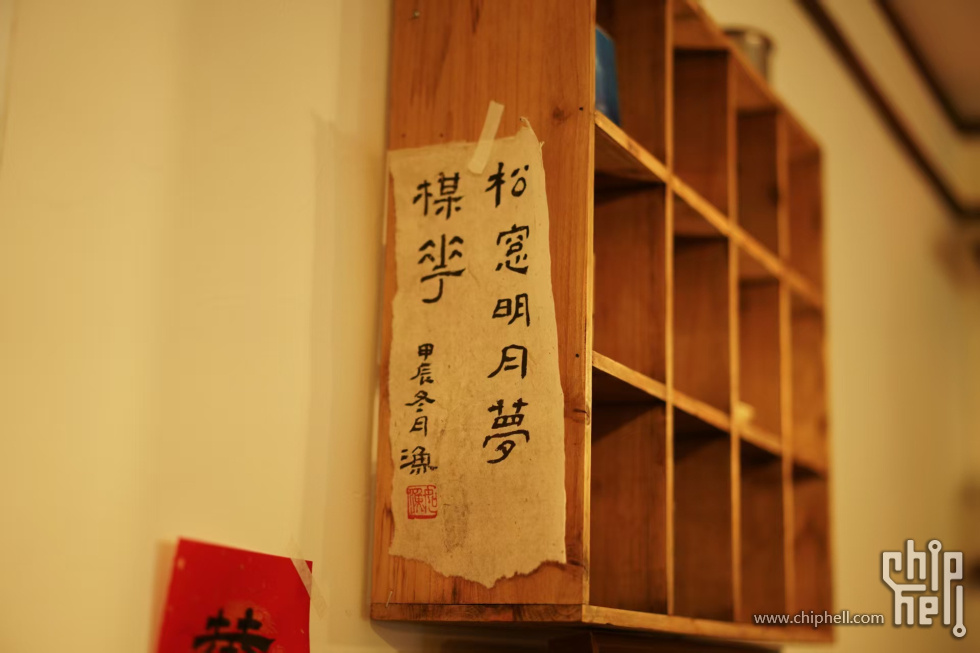 松窓明月夢
楳華
甲辰冬月漁
恭
www.chiphell.com
chip
hell